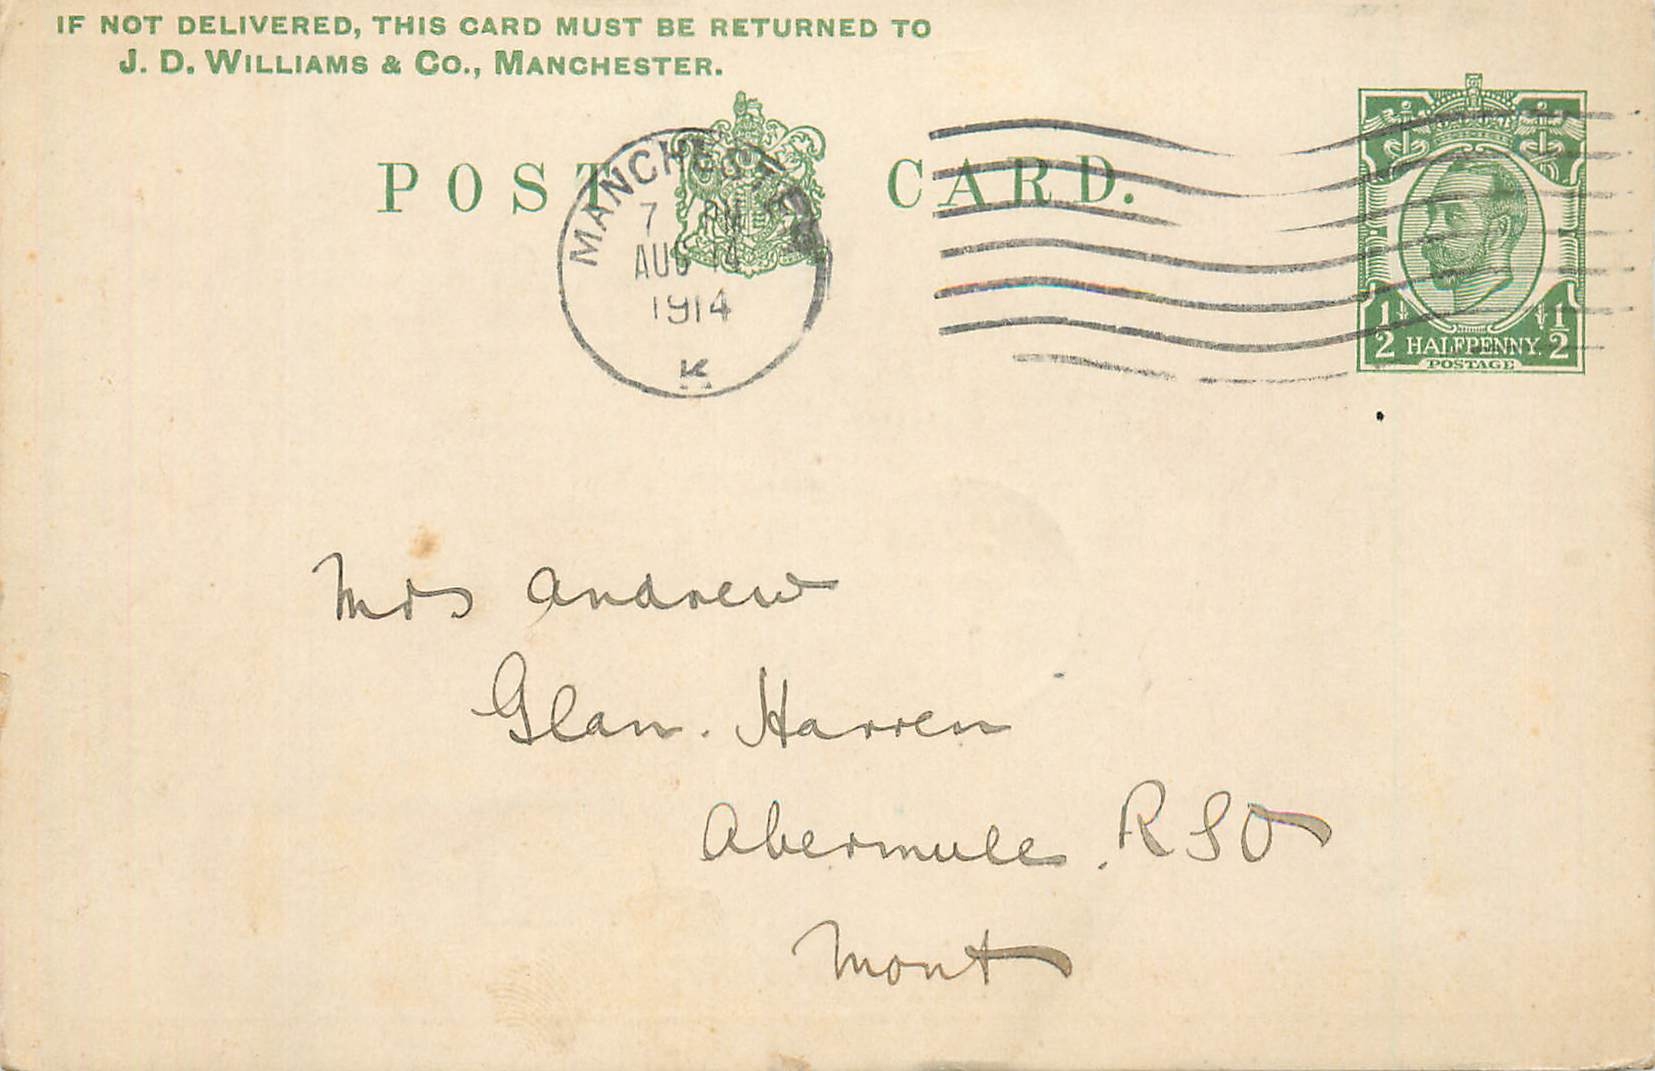 IF NOT DELIVERED, THIS CARD MUST BE RETURNED TO
J. D. WILLIAMS & CO., MANCHESTER.
POST CARD.
MANCHESTER
7 PM
AUG 14
1914
K
1/2 HALFPENNY. 1/2
POSTAGE
Mrs Andrew
Glan. Harren
Abermule. RSO
Mont